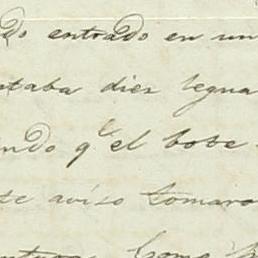 do entrado en un
taba diez legua
ndo q.e el bote
te aviso tomaro